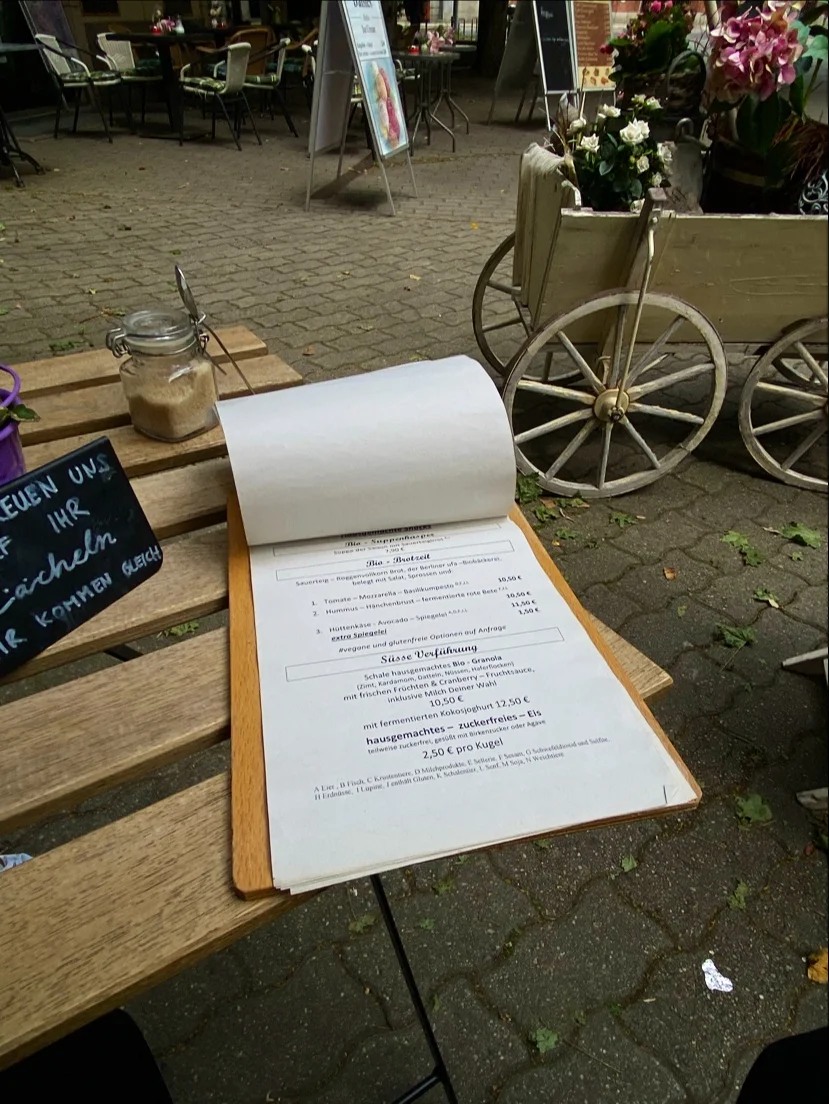 EUEN UNS
F IHR
Lächeln
IR KOMMEN GLEICH
Hausgemachte Snacks
Bio - Suppenkasper
Suppe der Saison mit Sauerteigbrot
7,90 €
Bio - Brotzeit
Sauerteig – Roggenvollkorn Brot, der Berliner ufa –Biobäckerei,
belegt mit Salat, Sprossen und:
1. Tomate – Mozzarella – Basilikumpesto 10,50 €
2. Hummus – Hänchenbrust – fermentierte rote Bete 10,50 €
11,50 €
3. Hüttenkäse - Avocado – Spiegelei
extra Spiegelei 1,50 €
#vegane und glutenfreie Optionen auf Anfrage
Süsse Verführung
Schale hausgemachtes Bio - Granola
(Zimt, Kardamom, Datteln, Nüssen, Haferflocken)
mit frischen Früchten & Cranberry – Fruchtsauce,
inklusive Milch Deiner Wahl
10,50 €
mit fermentierten Kokosjoghurt 12,50 €
hausgemachtes – zuckerfreies – Eis
teilweise zuckerfrei, gesüßt mit Birkenzucker oder Agave
2,50 € pro Kugel
A Eier , B Fisch, C Krustentiere, D Milchprodukte, E Sellerie, F Sesam, G Schwefeldioxid und Sulfite,
H Erdnüsse, I Lupine, J enthält Gluten, K Schalentier, L Senf, M Soja, N Weichtiere